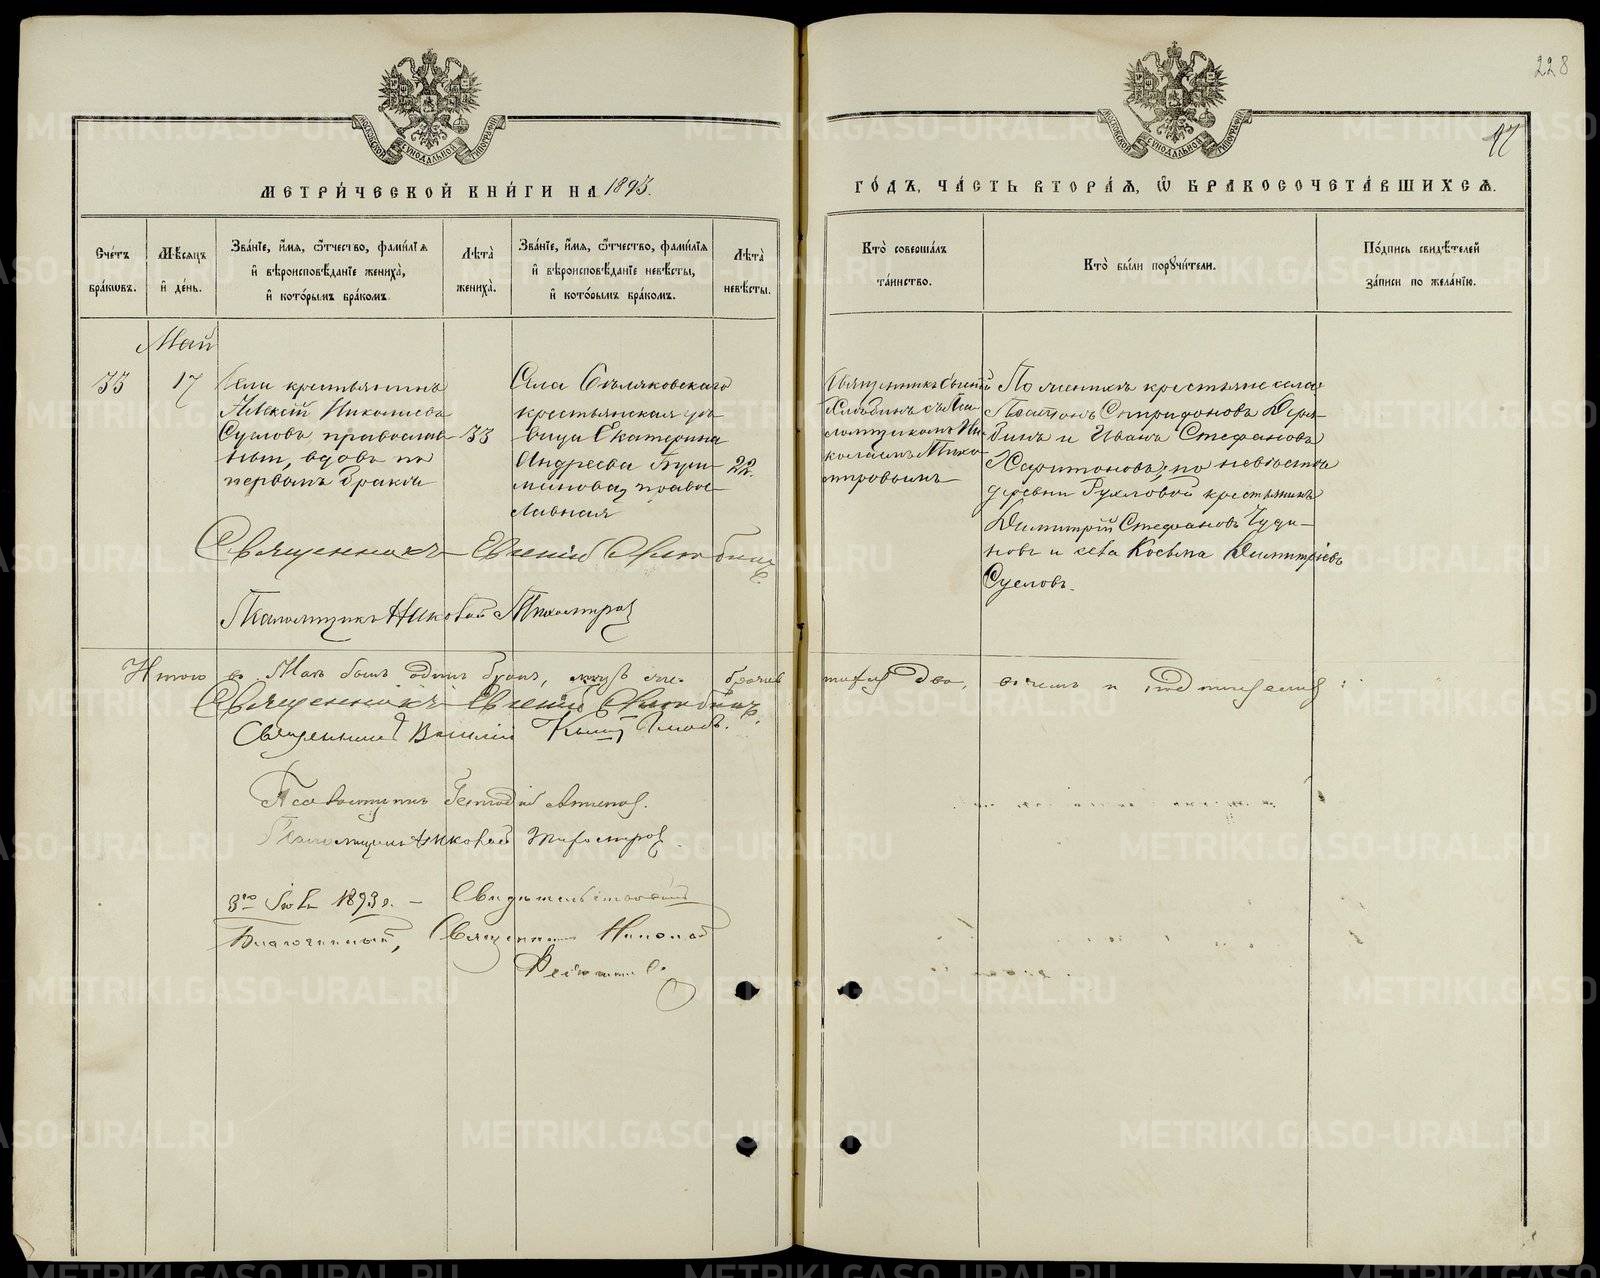 228
17
МОСКОВСКОЙ СѴНОДАЛЬНОЙ ТИПОГРАФІИ
МОСКОВСКОЙ СѴНОДАЛЬНОЙ ТИПОГРАФІИ
МЕТРИ́ЧЕСКОЙ КНИ́ГИ НА 1893.
ГО́ДЪ, ЧА́СТЬ ВТОРА́Я, Ѽ БРАКОСОЧЕТА́ВШИХСЯ.
Сче́тъ бра́кѡвъ.
Мѣ́сяцъ и҆ де́нь.
Зва́нїе, и҆́мя, ѻ҆́тчество, фами́лїя и҆ вѣроисповѣ́данїе жениха̀, и҆ кото́рымъ бра́комъ.
Лѣта̀ жениха̀.
Зва́нїе, и҆́мя, ѻ҆́тчество, фами́лїя и҆ вѣроисповѣ́данїе невѣ́сты, и҆ кото́рымъ бра́комъ.
Лѣта̀ невѣ́сты.
Кто̀ соверша́лъ та́инство.
Кто̀ бы́ли порꙋчи́тели.
По́дпись свидѣ́телей за́писи по жела́нїю.
Май
33
17
Села крестьянинъ
Алексій Николаевъ
Сусловъ православ-
ный, вдовъ по
первомъ бракѣ
33
Села Бѣляковскаго
крестьянская дѣ-
вица Екатерина
Андреева
православная
22.
Священникъ Евгеній
Хлѣбинъ съ Пса-
ломщикомъ Ни-
колаемъ Тихо-
мировымъ
По женихѣ крестьяне села
Платонъ Спиридоновъ Деря-
бинъ и Иванъ Стефановъ
Харитоновъ; по невѣстѣ
деревни крестьянинъ
Димитрій Стефановъ Чуди-
новъ и села Косьма Димитріевъ
Сусловъ.
Священникъ Евгеній Хлѣбинъ
Псаломщикъ Николай Тихомировъ
Итого въ Маѣ былъ одинъ бракъ, два, въ чемъ и подписуемся:
Священникъ Евгеній Хлѣбинъ.
Священникъ Василій
Псаломщикъ
Псаломщикъ Николай Тихомировъ.
3го Іюля 1893 г. — Свидѣтельствовалъ
Благочинный, Священникъ Николай